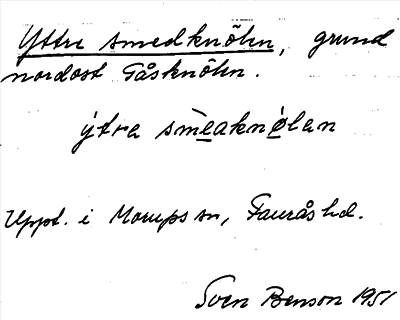 Yttre smedknöln, grund
nordost Gåsknöln.
ýtra smeaknölan
Uppt. i Morups sn, Faurås hd.
Sven Benson 1951